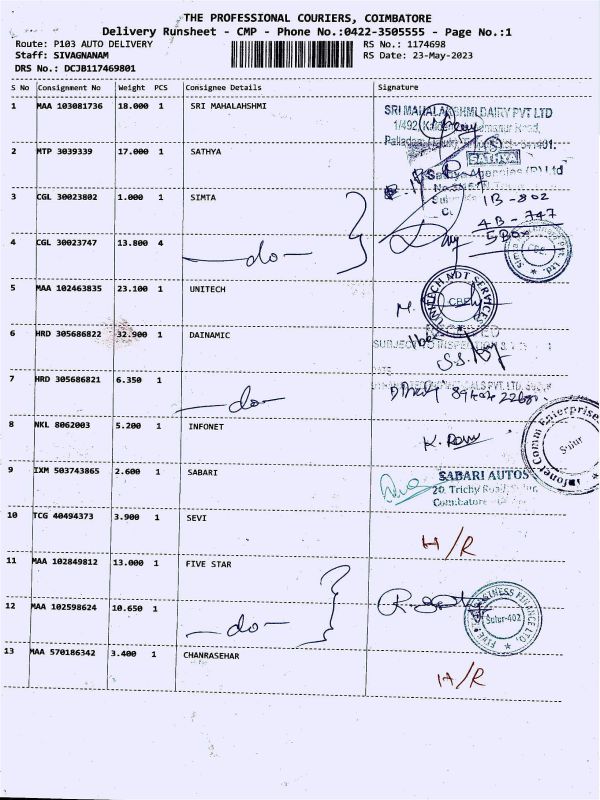 THE PROFESSIONAL COURIERS, COIMBATORE
Delivery Runsheet - CMP - Phone No.:0422-3505555 - Page No.:1
Route: P103 AUTO DELIVERY
RS No.: 1174698
Staff: SIVAGNANAM
RS Date: 23-May-2023
DRS No.: DCJB117469801
S No Consignment No Weight PCS Consignee Details Signature
1 MAA 103081736 18.000 1 SRI MAHALAHSHMI
SRI MAHALAKSHMI DAIRY PVT LTD
2 MTP 3039339 17.000 1 SATHYA
SATHYA
3 CGL 30023802 1.000 1 SIMTA
1B-802
4B-747
4 CGL 30023747 13.800 4 —do—
5 Box
CBE
5 MAA 102463835 23.100 1 UNITECH
UNITECH NDT SERVICES
CBE
6 HRD 305686822 32.900 1 DAINAMIC
SUBJECT TO INSPECTION
7 HRD 305686821 6.350 1 —do—
8 NKL 8062003 5.200 1 INFONET
K. Ram
Infonet Comm Enterprises
Sulur
9 IXM 503743865 2.600 1 SABARI
SABARI AUTOS
20, Trichy Road, Sulur,
Coimbatore
10 TCG 40494373 3.900 1 SEVI
H/R
11 MAA 102849812 13.000 1 FIVE STAR
FIVE STAR BUSINESS FINANCE LTD.
Sulur-402
12 MAA 102598624 10.650 1 —do—
13 MAA 570186342 3.400 1 CHANRASEHAR
H/R